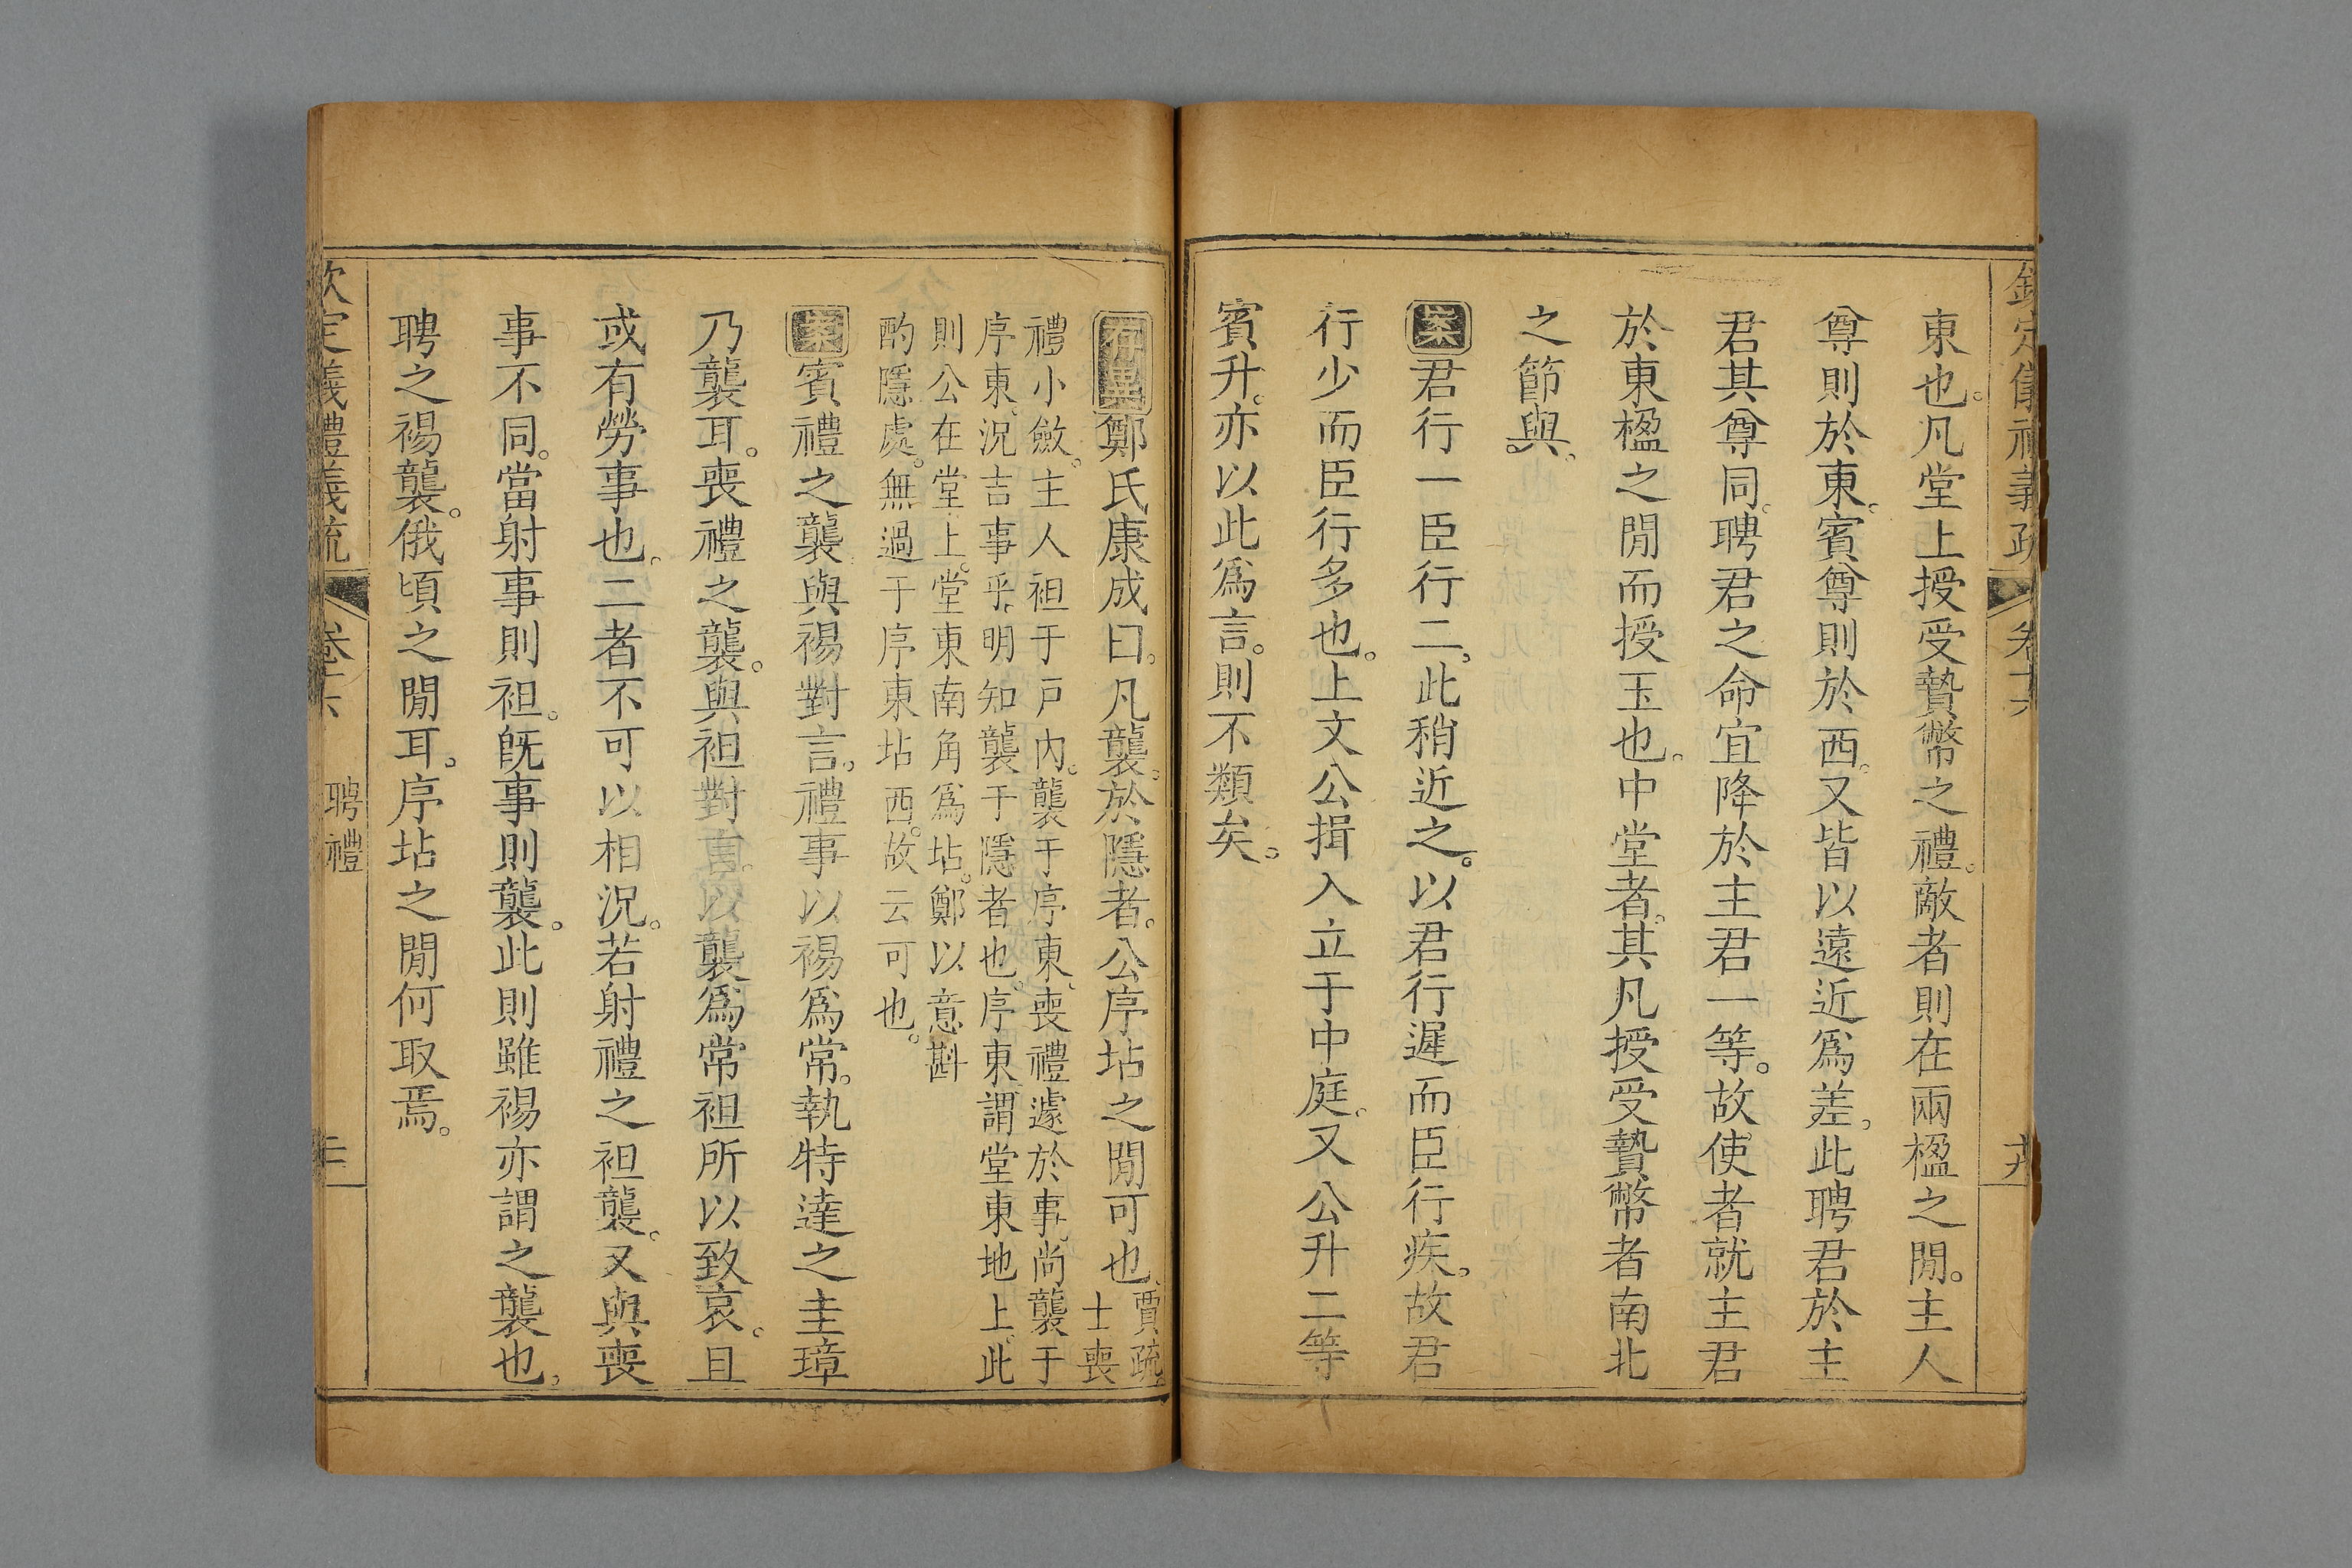 欽定儀禮義疏 卷十六
東也。凡堂上授受贄幣之禮。敵者則在兩楹之閒。主人
尊則於東。賓尊則於西。又皆以遠近爲差。此聘君於主
君其尊同。聘君之命宜降於主君一等。故使者就主君
於東楹之閒而授玉也。中堂者。其凡授受贄幣者南北
之節與。
案君行一臣行二。此稍近之。以君行遲而臣行疾。故君
行少而臣行多也。上文公揖入立于中庭。又公升二等
賓升。亦以此爲言。則不類矣。
存異鄭氏康成曰。凡襲。於隱者。公序坫之閒可也。賈疏。士喪
禮小斂。主人袒于戸內。襲于序東。喪禮遽於事。尚襲于
序東。況吉事乎。明知襲于隱者也。序東。謂堂東地上。此
則公在堂上。堂東南角爲坫。鄭以意斟
酌隱處。無過于序東坫西。故云可也。
案賓禮之襲與裼對言。禮事以裼爲常。執特達之圭璋
乃襲耳。喪禮之襲。與袒對言。以襲爲常袒所以致哀。且
或有勞事也。二者不可以相況。若射禮之袒襲。又與喪
事不同。當射事則袒。旣事則襲。此則雖裼亦謂之襲也。
聘之裼襲。俄頃之閒耳。序坫之閒何取焉。
欽定儀禮義疏 卷十六 聘禮